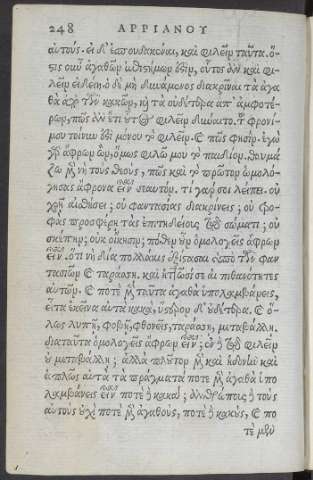 248 ΑΡΡΙΑΝΟΥ
αὐτούς. εἰ δὲ ἐσπουδάκασιν, καὶ φιλεῖν ταῦτα. ὅ-
ςις οὖν ἀγαθῶν ἐπιςήμων ἐςὶν, οὗτος ἂν καὶ φι-
λεῖν εἰδείη· ὁ δὲ μὴ δυνάμενος διακρῖναι τὰ ἀγα
θὰ ἀπὸ τῶν κακῶν, καὶ τὰ οὐδέτερα ἀπ' ἀμφοτέ-
ρων, πῶς ἂν ἔτι οὗτος φιλεῖν δύναιτο; τοῦ φρονί-
μου τοίνυν ἐςὶ μόνου τὸ φιλεῖν. καὶ πῶς φησίν· ἐγὼ
γὰρ ἄφρων ὢν, ὅμως φιλῶ μου τὸ παιδίον. θαυμά
ζω μὲν νὴ τοὺς θεοὺς, πῶς καὶ τὸ πρῶτον ὡμολό-
γησας ἄφρονα εἶναι σεαυτόν. τί γάρ σοι λείπει· οὐ
χρῇ αἰσθήσει; οὐ φαντασίας διακρίνεις; οὐ τρο-
φὰς προσφέρῃ τὰς ἐπιτηδείους τῷ σώματι; οὐ
σκέπην; οὐκ οἴκησιν; πόθεν οὖν ὁμολογεῖς ἄφρων
εἶναι. ὅτι νὴ δία πολλάκις ἐξίςασαι ὑπὸ τῶν φαν
τασιῶν καὶ ταράσσῃ. καὶ ἡττῶσί σε αἱ πιθανότητες
αὐτῶν. καὶ ποτὲ μὲν ταῦτα ἀγαθὰ ὑπολαμβάνεις,
εἶτα ἐκεῖνα αὐτὰ κακὰ, ὕςερον δ' οὐδέτερα. καὶ ὅ-
λως λυπῇ, φοβῇ, φθονεῖς, ταράσσῃ, μεταβάλλῃ.
διὰ ταῦτα ὁμολογεῖς ἄφρων εἶναι; ἐν δὲ τῷ φιλεῖν
οὐ μεταβάλλῃ; ἀλλὰ πλοῦτον μὲν καὶ ἡδονὴν καὶ
ἁπλῶς αὐτὰ τὰ πράγματα ποτὲ μὲν ἀγαθὰ ὑπο
λαμβάνεις εἶναι ποτὲ δὲ κακά; ἀνθρώπους δὲ τοὺς
αὐτοὺς οὐχὶ ποτὲ μὲν ἀγαθοὺς, ποτὲ δὲ κακούς, καὶ πο
τὲ μὲν